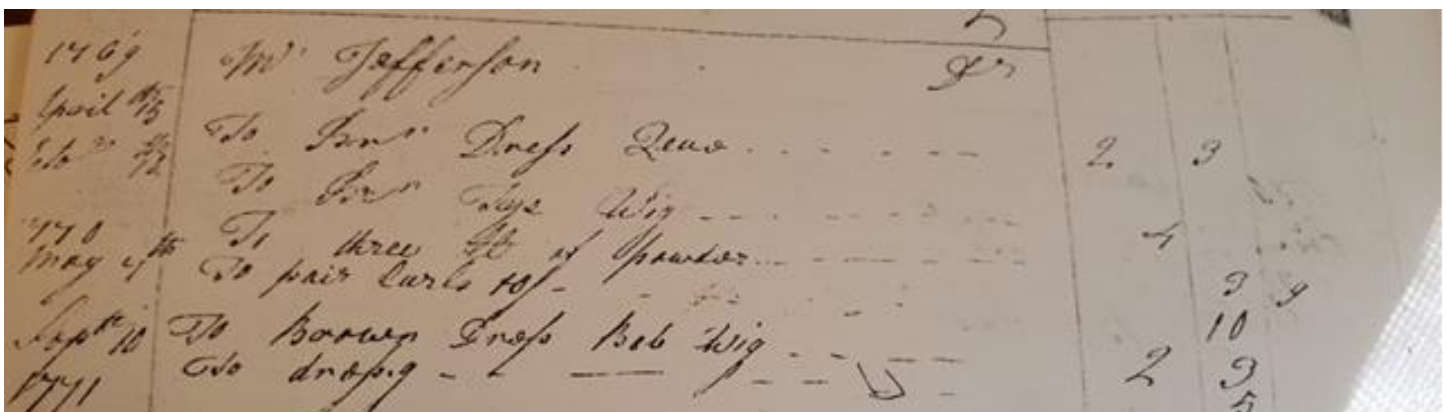 1769 Mr Jefferson Dr
April 15th
To Brn Dress Queue - - - - - 2 3
To Brn Tye Wig - - - - -
1770 To three lb of Powder - - - - - 4
May 4th To pair Curls 10/- - - - 3 9
10
Sept 10th To Brown Dress Bob Wig - - - - 2 3
1771 To dressg - - - - - - 5